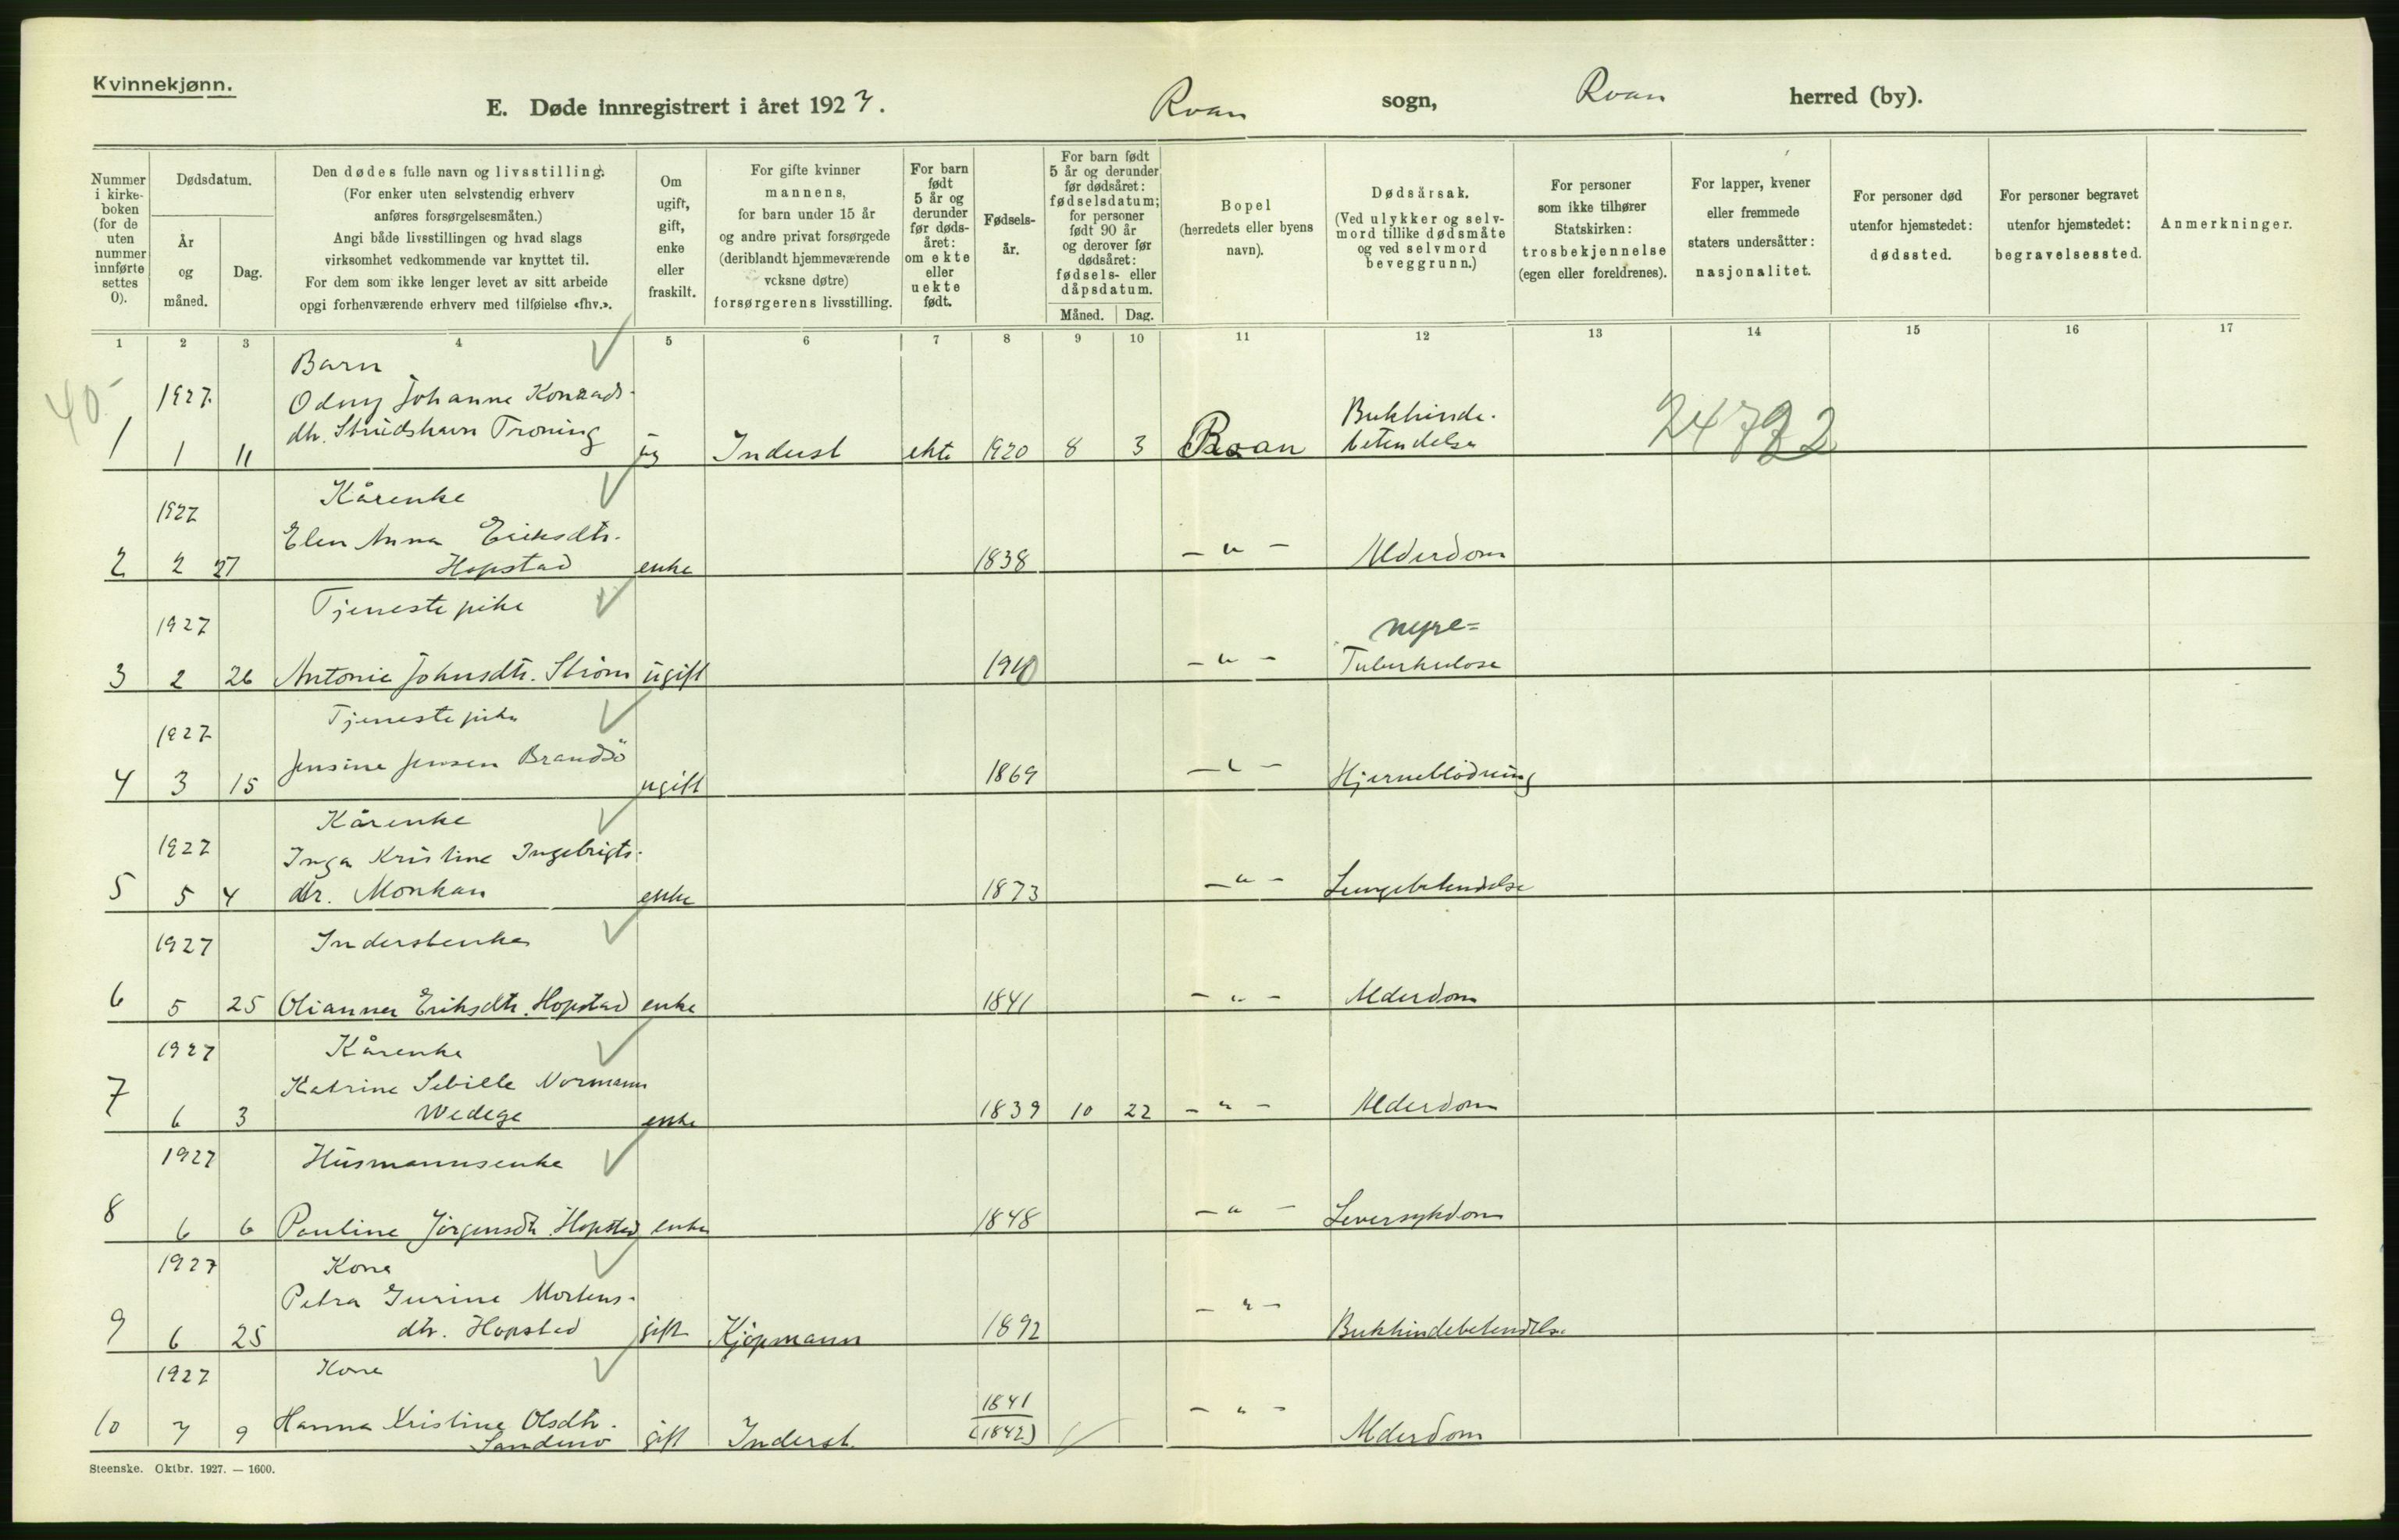 Kvinnekjønn.
E. Døde innregistrert i året 1927. Roan sogn, Roan herred (by).
Nummer i kirkeboken (for de uten nummer innførte settes 0).
Dødsdatum.
År og måned.
Dag.
Den dødes fulle navn og livsstilling.
(For enker uten selvstendig erhverv
anføres forsørgelsesmåten.)
Angi både livsstillingen og hvad slags
virksomhet vedkommende var knyttet til.
For dem som ikke lenger levet av sitt arbeide
opgi forhenværende erhverv med tilføielse «fhv.».
Om ugift, gift, enke eller fraskilt.
For gifte kvinner
mannens,
for barn under 15 år
og andre privat forsørgede
(deriblandt hjemmeværende
vcksne døtre)
forsørgerens livsstilling.
For barn født 5 år og derunder før dødsåret: om ekte eller uekte født.
Fødselsår.
For barn født
5 år og derunder
før dødsåret:
fødselsdatum;
for personer
født 90 år
og derover før
dødsåret:
fødsels- eller
dåpsdatum.
Måned. Dag.
Bopel
(herredets eller byens
navn).
Dødsårsak.
(Ved ulykker og selv-
mord tillike dødsmåte
og ved selvmord
beveggrunn.)
For personer
som ikke tilhører
Statskirken:
trosbekjennelse
(egen eller foreldrenes).
For lapper, kvener
eller fremmede
staters undersåtter:
nasjonalitet.
For personer død
utenfor hjemstedet:
dødssted.
For personer begravet
utenfor hjemstedet:
begravelsessted.
Anmerkninger.
1 2 3 4 5 6 7 8 9 10 11 12 13 14 15 16 17
40-
Barn
1927 Odny Johanne Konrads-
dtr. Strudshavn Troning Bukhinde-
1 1 11 ug Inderst ekte 1920 8 3 Roan betendelse
Kårenke
1927 Elen Anna Eriksdtr.
2 2 27 Hopstad enke 1838 -"- Alderdom
Tjenestepike
1927 nyre=
3 2 26 Antonie Johnsdtr. Ström ugift 1910 -"- Tuberkulose
Tjenestepike
1927
4 3 15 Jensine Jensen Brandsö ugift 1869 -"- Hjerneblödning
Kårenke
1927 Inga Kristine Ingebrigts-
5 5 4 dtr. Monkan enke 1873 -"- Lungebetendelse
1927 Inderstenke
6 5 25 Olianna Eriksdtr. Hopstad enke 1841 -"- Alderdom
1927 Kårenke
Katrine Sebille Normann
7 6 3 Wedege enke 1839 10 22 -"- Alderdom
1927 Husmannsenke
8 6 6 Pauline Jörgensdtr. Hopstad enke 1848 -"- Leversykdom
1927 Kone
Petra Gurine Mortens-
9 6 25 dtr. Hopstad gift Kjöpmann 1892 -"- Bukhindebetendelse
1927 Kone
1841
10 7 9 Hanna Kristine Olsdtr. gift Inderst. (1842) -"- Alderdom
Steenske. Oktbr. 1927. — 1600.